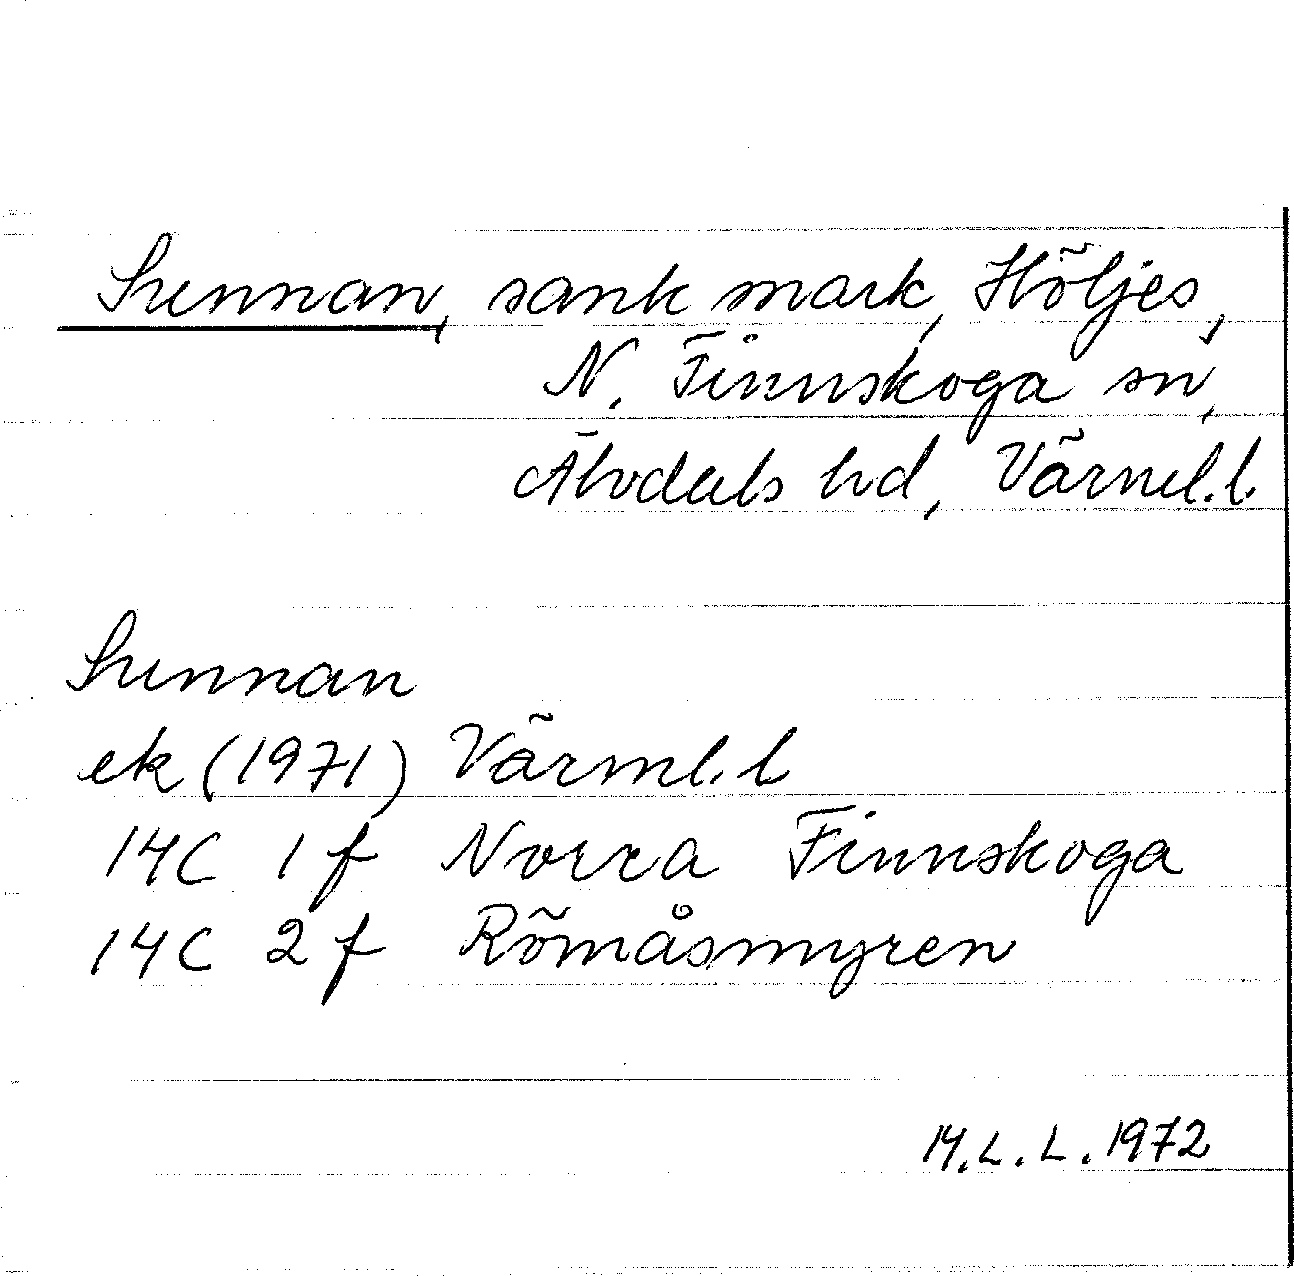 Sunnan, sank mark, Höljes,
N. Finnskoga sn,
Älvdals hd, Värml.l.
Sunnan
ek (1971) Värml.l
14C 1f Norra Finnskoga
14C 2f Römåsmyren
M.L.L. 1972